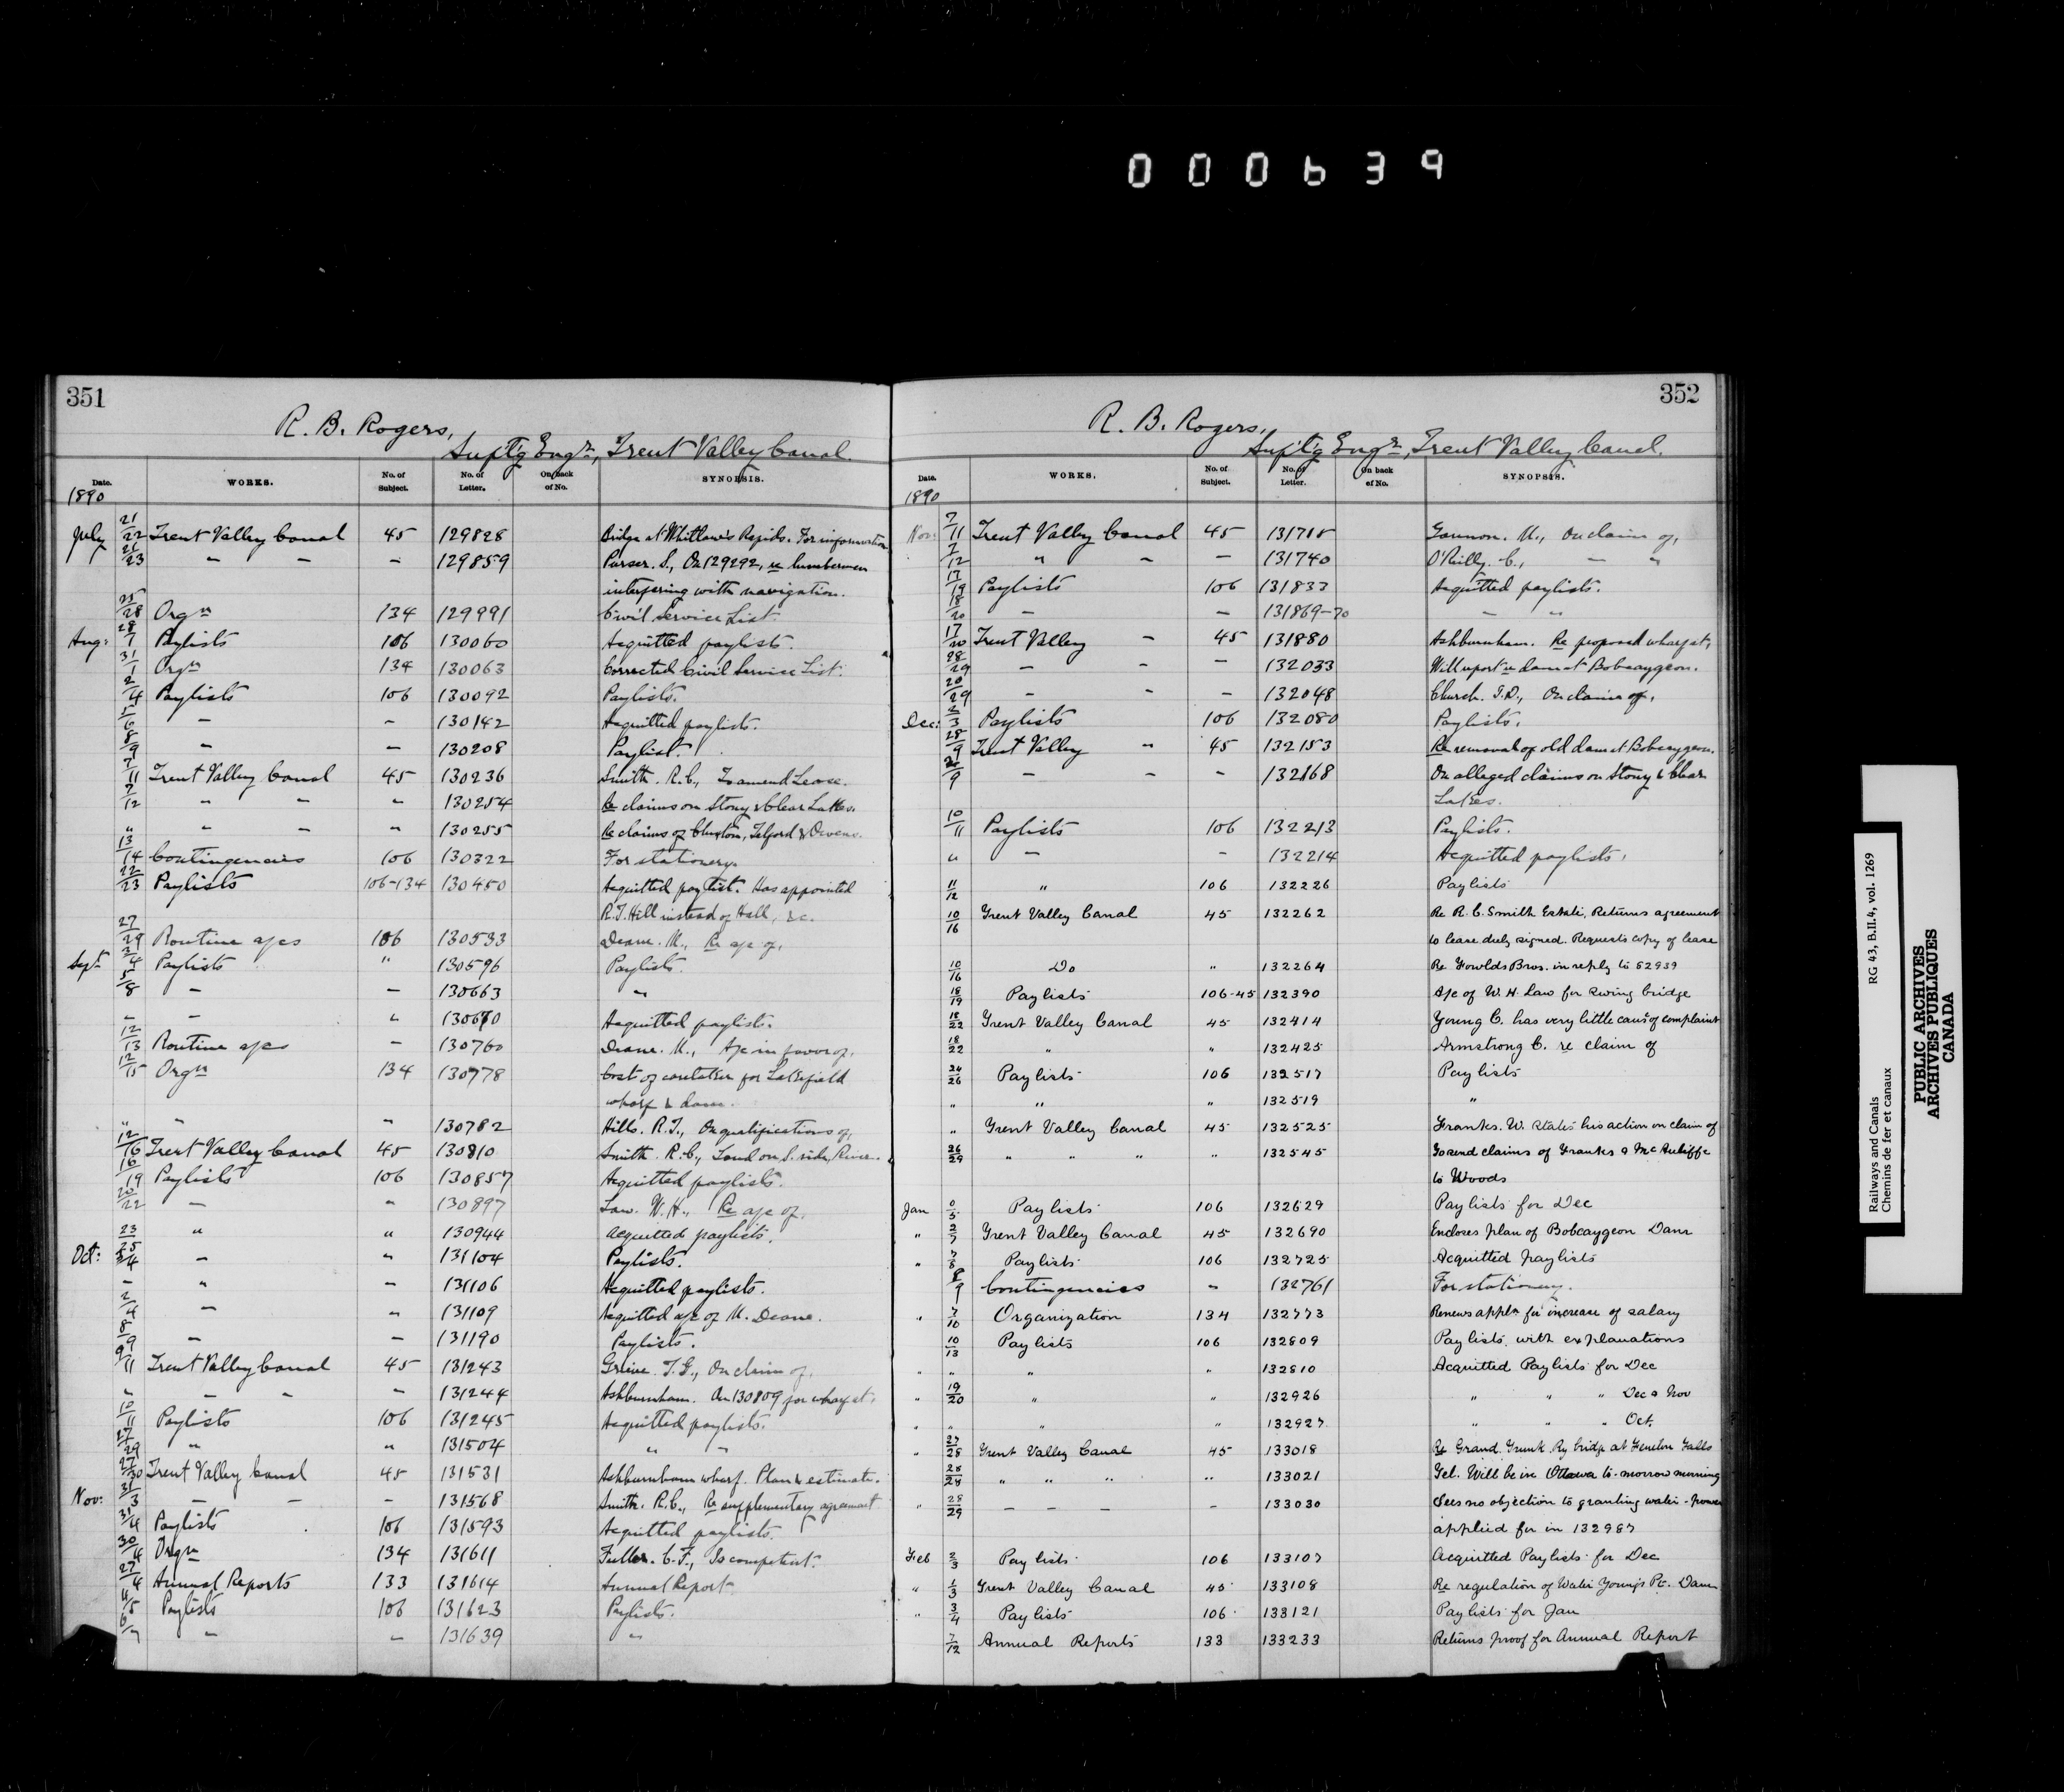 000639
351
R. B. Rogers,
Suptg Engr, Trent Valley Canal.
Date. WORKS. No. of Subject. No. of Letter. On back of No. SYNOPSIS.
1890
July 21/22 Trent Valley Canal 45 129828 Bridge at Whitlaw's Rapids. For information
21/23 " " " 129859 Purser. S., On 129292, re lumbermen
interfering with navigation.
25/28 Orgn 134 129991 Civil Service List.
Aug: 28/1 Paylists 106 130060 Acquitted paylists.
31/1 Orgn 134 130063 Corrected Civil Service List.
2/4 Paylists 106 130092 Paylists.
5/6 " " 130142 Acquitted paylists.
8/9 " " 130208 Paylist.
7/11 Trent Valley Canal 45 130236 Smith. R.C., To amend Lease.
7/12 " " " 130254 Re claims on Stony & Clear Lakes.
" " " " 130255 Re claims of Cluxton, Telford & Owens.
13/14 Contingencies 106 130322 For stationery.
22/23 Paylists 106-134 130450 Acquitted paylist. Has appointed
R.T. Hill instead of Hall, &c.
27/29 Routine a/cs 106 130533 Deane. M., Re a/c of,
Sept 3/4 Paylists " 130596 Paylists.
5/8 " " 130663 "
" " " 130670 Acquitted paylists.
12/13 Routine a/cs " 130760 Deane. M., A/c in favor of,
12/15 Orgn 134 130778 Cost of caretaker for Lakefield
wharf & dam.
" " " 130782 Hill. R.T., On qualifications of,
12/16 Trent Valley Canal 45 130810 Smith. R.C., Land on S. side, River.
16/19 Paylists 106 130857 Acquitted paylists.
20/22 " " 130897 Law. W.H., Re a/c of,
23/25 " " 130944 Acquitted paylists.
Oct: 3/4 " " 131104 Paylists.
" " " 131106 Acquitted paylists.
2/4 " " 131109 Acquitted a/c of M. Deane.
8/9 " " 131190 Paylists.
9/11 Trent Valley Canal 45 131243 Grieve. T.G., On claim of,
" " " " 131244 Ashburnham. On 130809 for wharf at,
10/11 Paylists 106 131245 Acquitted paylists.
27/29 " " 131504 " "
27/30 Trent Valley Canal 45 131531 Ashburnham wharf. Plan & estimate.
Nov: 31/3 " " " 131568 Smith. R.C., Re supplementary agreement
31/4 Paylists 106 131593 Acquitted paylists.
30/4 Orgn 134 131611 Fuller. C.F., Is competent.
27/4 Annual Reports 133 131614 Annual Report.
4/5 Paylists 106 131623 Paylists.
6/7 " " 131639 "
352
R. B. Rogers,
Suptg Engr, Trent Valley Canal.
Date. WORKS. No. of Subject. No. of Letter. On back of No. SYNOPSIS.
1890
Nov: 7/11 Trent Valley Canal 45 131715 Gannon. M., On claim of,
7/12 " " " 131740 O'Reilly. C., " "
17/19 Paylists 106 131833 Acquitted paylists.
18/20 " " 131869-70 " "
17/20 Trent Valley " 45 131880 Ashburnham. Re proposed wharf at,
28/29 " " " 132033 Will report re dam at Bobcaygeon.
20/29 " " " 132048 Church. T.D., On claim of,
Dec: 2/3 Paylists 106 132080 Paylists.
28/9 Trent Valley " 45 132153 Re removal of old dam at Bobcaygeon.
" " " 132168 On alleged claims on Stony & Clear
Lakes.
10/11 Paylists 106 132213 Paylists.
" " " 132214 Acquitted paylists,
11/12 " 106 132226 Paylists
10/16 Trent Valley Canal 45 132262 Re R. C. Smith Estate, Returns agreement
to lease duly signed. Requests copy of lease
10/16 Do " 132264 Re Fowlds Bros. in reply to 52939
18/19 Paylists 106-45 132390 A/c of W. H. Law for swing bridge
18/22 Trent Valley Canal 45 132414 Young C. has very little cause of complaint
18/22 " " 132425 Armstrong C. re claim of
24/26 Paylists 106 132517 Paylists
" " " 132519 "
" Trent Valley Canal 45 132525 Franks. W. States his action on claim of
26/29 " " " " 132545 To send claims of Franks & McAuliffe
to Woods
Jan /5 Paylists 106 132629 Paylists for Dec
" 2/7 Trent Valley Canal 45 132690 Encloses plan of Bobcaygeon Dam
" 7/8 Paylists 106 132725 Acquitted paylists
8/9 Contingencies " 132761 For stationery.
" 7/10 Organization 134 132773 Renews appln for increase of salary
10/13 Paylists 106 132809 Paylists with explanations
" " " " 132810 Acquitted Paylists for Dec
" 19/20 " " 132926 " " " Dec & Nov
" " " " 132927 " " " Oct.
" 27/28 Trent Valley Canal 45 133018 Re Grand Trunk Ry bridge at Fenelon Falls
28/28 " " " " 133021 Tel. Will be in Ottawa to-morrow morning
" 28/29 " " " " 133030 Sees no objection to granting water-power
applied for in 132987
Feb 2/3 Paylists 106 133107 Acquitted Paylists for Dec
" 1/3 Trent Valley Canal 45 133108 Re regulation of Water Young's Pt. Dam
" 3/4 Paylists 106 133121 Paylists for Jan
7/12 Annual Reports 133 133233 Returns proof for Annual Report
Railways and Canals RG 43, B.II.4, vol. 1269
Chemins de fer et canaux
PUBLIC ARCHIVES
ARCHIVES PUBLIQUES
CANADA